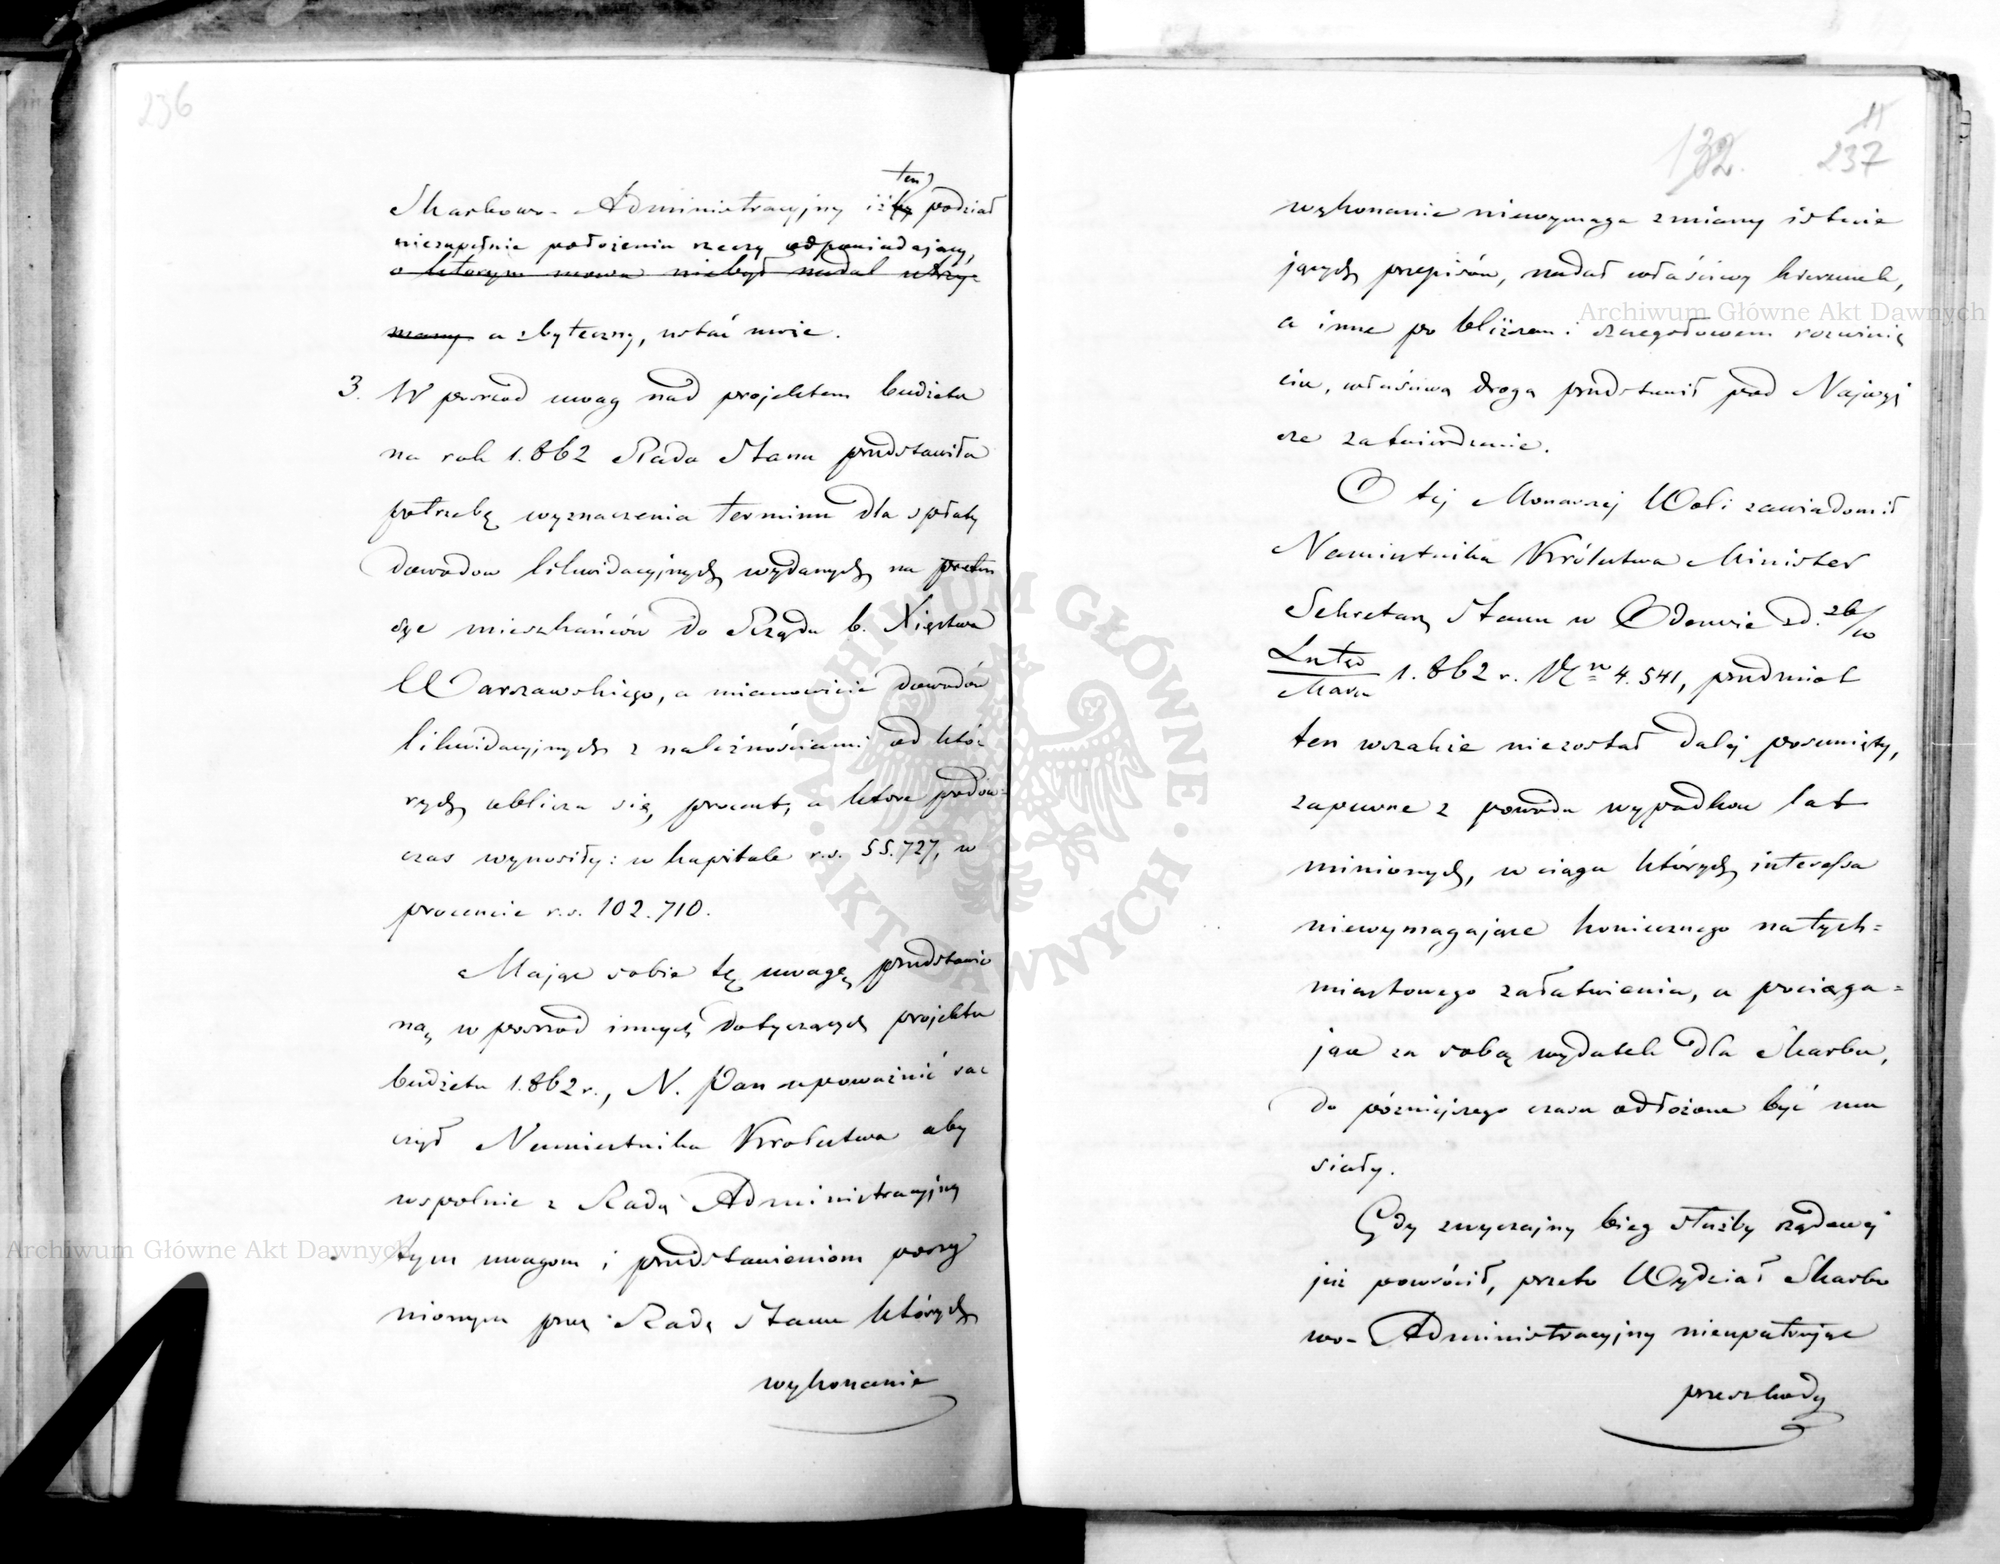 236
Skarbowo-Administracyjny iż ten podział
niezupełnie położeniu rzeczy odpowiadający,
o którym mowa niebył nadal utrzy
many a zbyteczny, ustać może.
3. W pośrod uwag nad projektem budżetu
na rok 1.862 Rada Stanu przedstawiła
potrzebę wyznaczenia terminu dla spłaty
dowodow likwidacyjnych wydanych na preten
sye mieszkańców do Rządu b. Xięstwa
Warszawskiego, a mianowicie dowodów
likwidacyjnych z należnościami od któ-
rych oblicza się procent, a które podów=
czas wynosiły: w kapitale r.s. 55.727, w
procencie r.s. 102.710.
Mając sobie tę uwagę przedstawio
ną, w pośrod innych dotyczących projektu
budżetu 1.862 r., N. Pan upoważnić ra
czył Namiestnika Krolestwa aby
wspolnie z Radą Administracyjną
tym uwagom i przedstawieniom poczy
nionym przez Radę Stanu których
wykonanie
11
132. 237
wykonanie niewymaga zmiany istnie
jących przepisów, nadał właściwy kierunek,
a inne po bliższem i szczegołowem rozwinię
ciu, właściwą drogą przedstawił pod Najwyż
sze zatwierdzenie.
O tej Monarszej Woli zawiadomił
Namiestnika Królestwa Minister
Sekretarz Stanu w Odezwie z d. 26/10
Lutego/Marca 1.862 r. No 4.541, przedmiot
ten wszakże niezostał dalej posunięty,
zapewne z powodu wypadkow lat
minionych, w ciągu których interessa
niewymagające koniecznego natych=
miastowego załatwienia, a pociąga=
jące za sobą wydatek dla Skarbu,
do późniejszego czasu odłożone być mu
siały.
Gdy zwyczajny bieg służby rządowej
już powrócił, przeto Wydział Skarbo
wo-Administracyjny nieupatrując
przeszkody
Archiwum Główne Akt Dawnych
Archiwum Główne Akt Dawnych
ARCHIWUM GŁÓWNE · AKT DAWNYCH ·